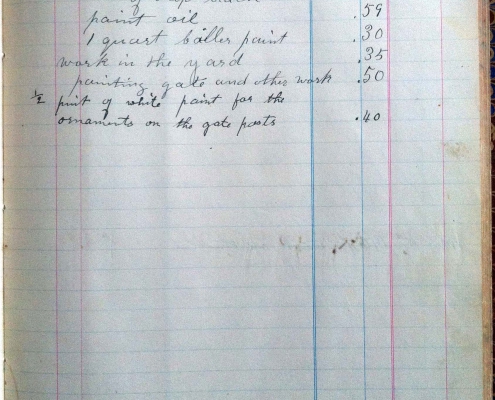 of
paint oil .59
1 quart baller paint .30
work in the yard .35
painting gate and other work .50
1/2 pint of white paint for the
ornaments on the gate posts .40